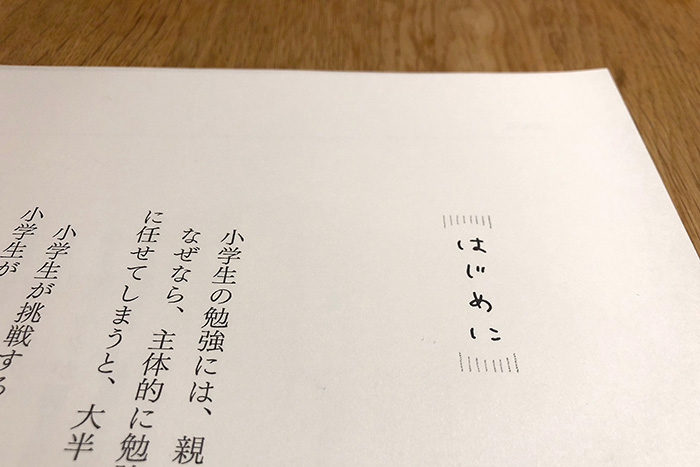 はじめに
小学生の勉強には、親
なぜなら、主体的に勉強
に任せてしまうと、大半
小学生が挑戦する
小学生が